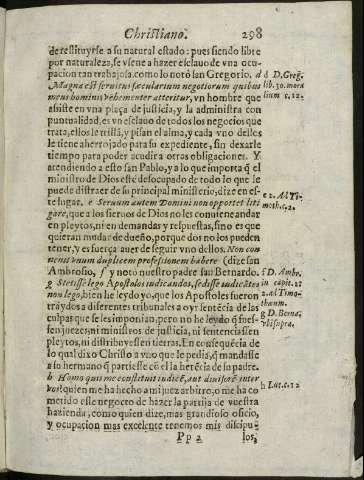 Christiano. 298
de restituyrse a su natural estado: pues siendo libre
por naturaleza, se viene a hazer esclauo de vna ocu-
pacion tan trabajosa, como lo notò san Gregorio. d
Magna est seruitus sæcularium negotiorum quibus
mens hominis vehementer atteritur, vn hombre que
assiste en vna plaça de justicia, y la administra con
puntualidad, es vn esclauo de todos los negocios que
trata, ellos le trillã, y pisan el alma, y cada vno dellos
le tiene aherrojado para su expediente, sin dexarle
tiempo para poder acudir a otras obligaciones. Y
atendiendo a esto san Pablo, ya lo que importa q̃ el
ministro de Dios esté desocupado de todo lo que le
puede distraer de su principal ministerio, dize en es-
te lugar. e Seruum autem Domini non oportet liti
gare, que a los sieruos de Dios no les conuiene andar
en pleytos, ni en demandas y respuestas, sino es que
quieran mudar de dueño, porque dos no los pueden
tener, y es fuerça auer de seguir vno dellos. Non con
uenit vnum duplicem professionem habere (dize san
Ambrosio, f y notò nuestro padre san Bernardo.
g Stetisse lego Apostolos iudicandos, sedisse iudicãtes
non lego, bien he leydo yo, que los Apostoles fueron
traydos a diferentes tribunales a oyr sentẽcia de las
culpas que se les imponian, pero no he leydo q̃ fues-
sen juezes, ni ministros de justicia, ni sentenciassen
pleytos, ni distribuyessen tierras. En consequẽcia de
lo qual dixo Christo a vno que le pedia, q̃ mandasse
a su hermano q̃ partiesse cõ el la herencia de su padre.
h Homo quis me constituit iudicẽ, aut diuisorẽ inter
vos? quien me ha hecho a mi juez arbitro, o me ha co
metido esse negocio de hazer la partija de vuestra
hazienda, como quien dize, mas grandioso oficio,
y ocupacion mas excelente tenemos mis discipu-
Pp 2 los,
d D. Greg.
lib. 30. mora
lium c. 12.
e 2. Ad Ti-
moth. c. 2.
f D. Ambr.
in capit. 2
2. ad Timo-
theum.
g D. Berna.
vbi supra.
h Luc. c. 12